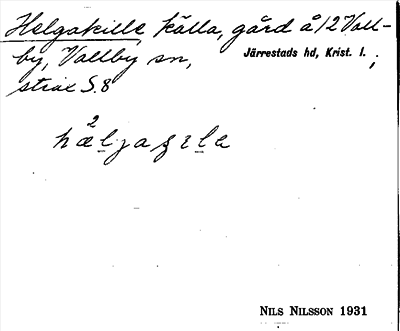 Helgakille, källa, gård å 12 Vall-
by, Vallby sn, Järrestads hd, Krist. l. ;
strax S. 8
2
hæljaʂɪla
NILS NILSSON 1931